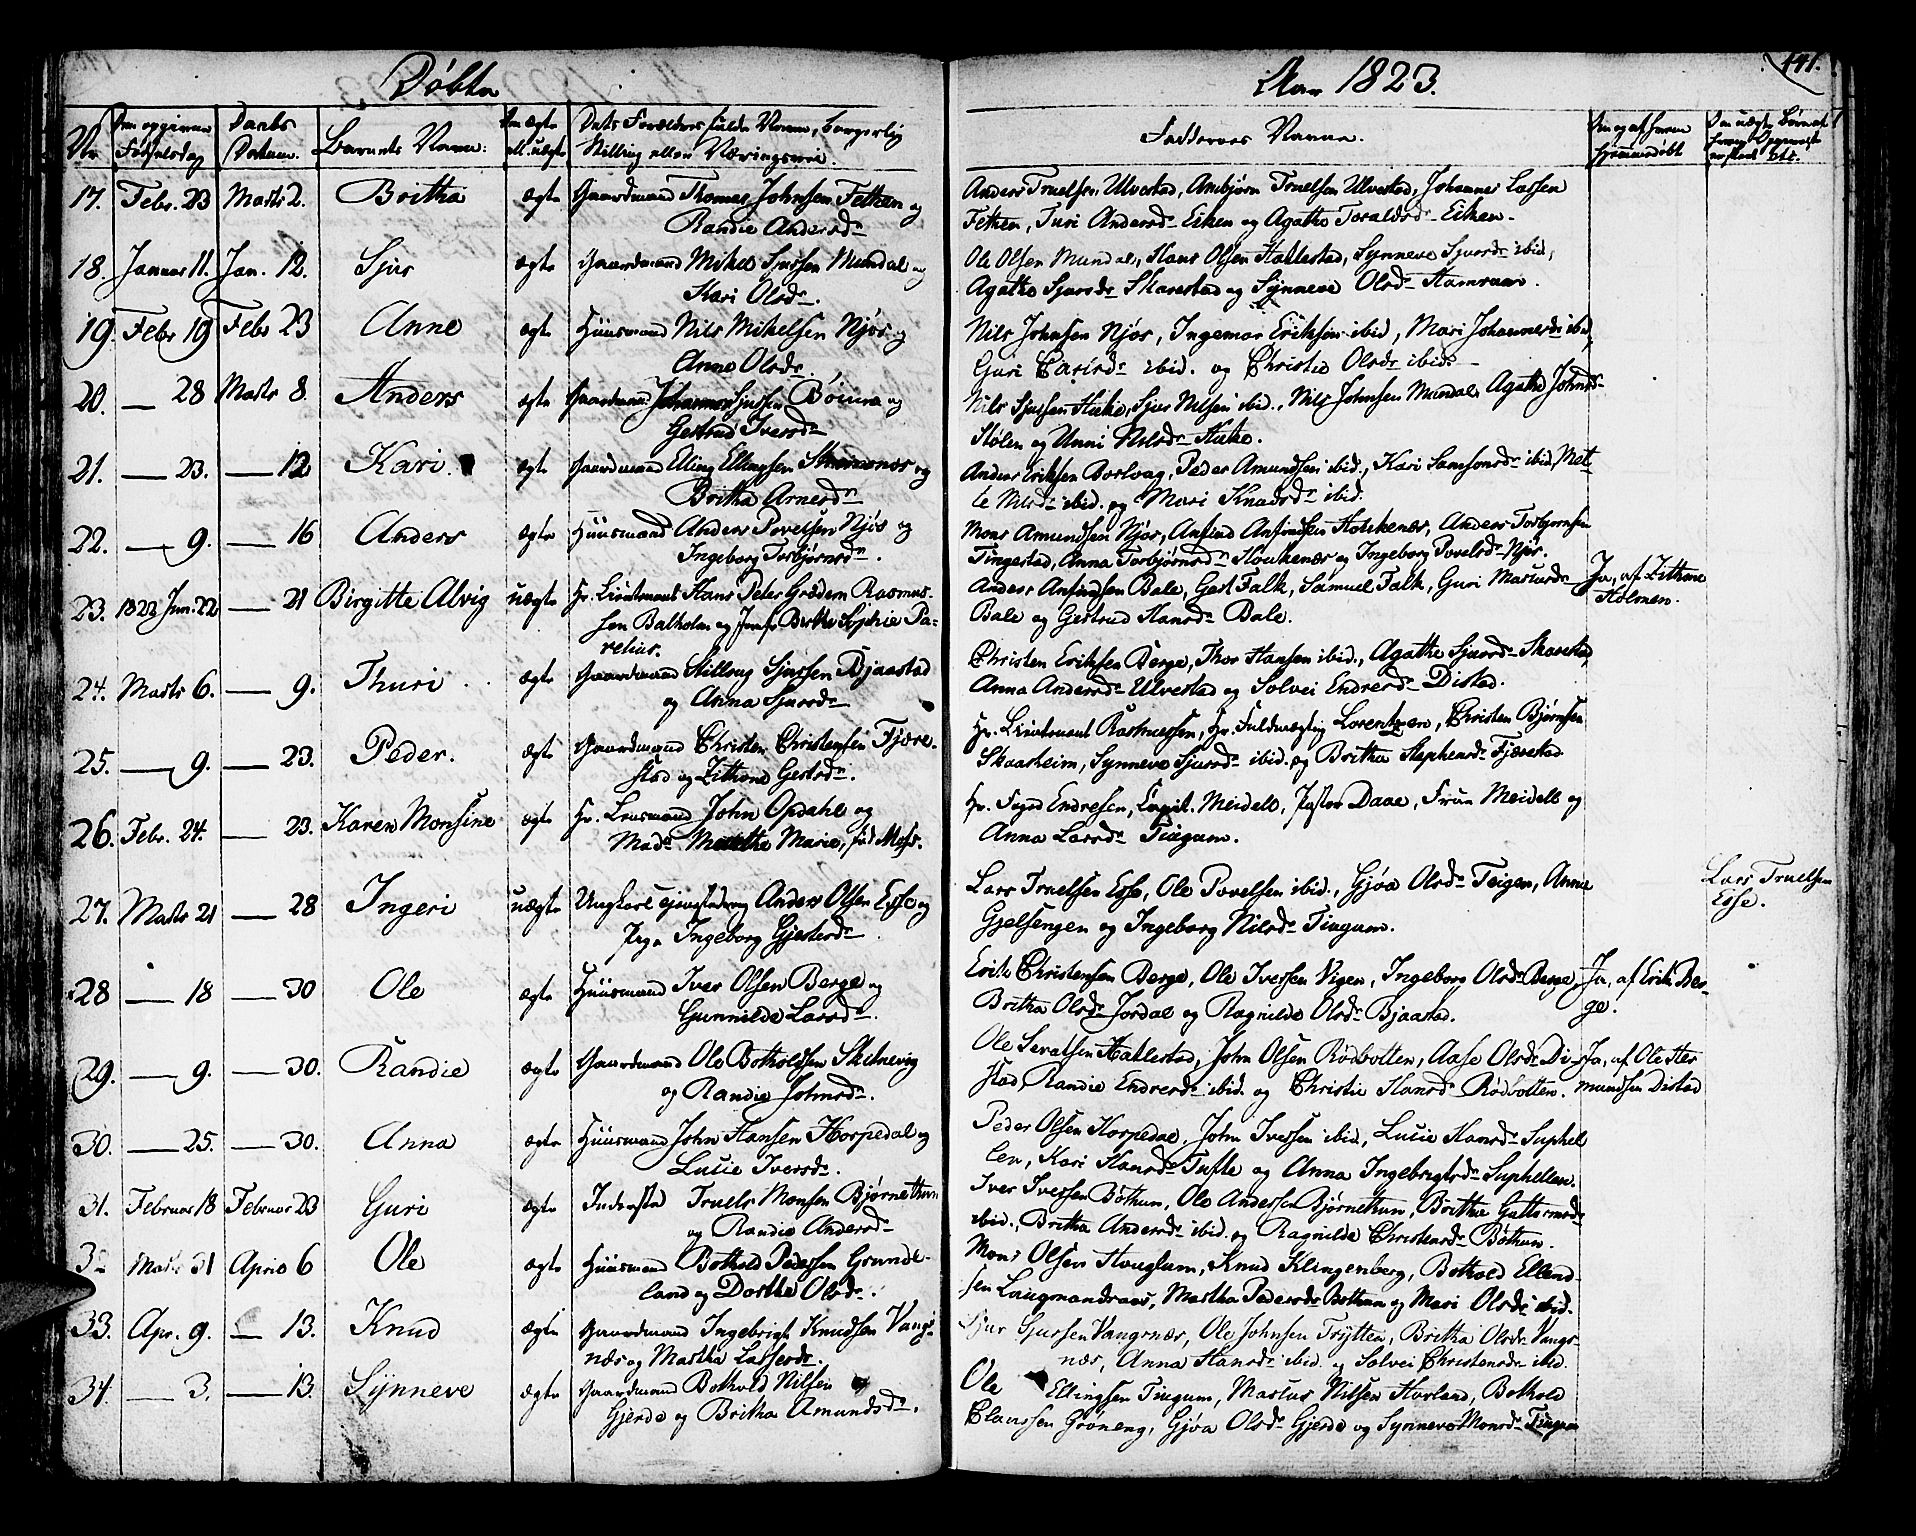 Døbte
Aar 1823.
141.
Nr.
Den opgivne Fødselsdag
Daabs Datum.
Barnets Navn.
Om ægte ell. uægte
Dets Forældres fulde Navne, borgerlig Stilling eller Næringsvei.
Faddernes Navne.
17. Febr. 23 Marts 2. Britha ægte Gaardmand Thomas Johnsen Fethen og
Randie Andersdr.
Anders Truelsen Ulvestad, Ambjørn Truelsen Ulvestad, Johannes Lassen
Fethen, Turi Andersdr. Eithen og Agatha Toraldsdr. Eithen.
18. Januar 11. Jan. 12. Sjur ægte Gaardmand Mikel Sjursen Mundal og
Kari Olsdr.
Ole Olsen Mundal, Hans Olsen Hallestad, Synneve Sjursdr ibid,
Agatha Sjursdr Skarestad og Synneve Olsdr Hamrum.
19. Febr 19 Febr 23 Anne ægte Huusmand Nils Mikelsen Njøs og
Anna Olsdr.
Nils Johnsen Njøs, Ingemar Eriksen ibid, Mari Johannesdr ibid,
Guri Carlsdr ibid. og Christie Olsdr ibid.
20. — 28 Marts 8. Anders ægte Gaardmand Johannes Sjursen Bøium og
Gertrud Iversdr
Nils Sjursen Huke, Sjur Nilsen ibid., Nils Johnsen Mundal, Agatha Johnsdr
Stølen og Unni Nilsdr Huke.
21. — 23. — 12 Kari. ægte Gaardmand Elling Ellingsen og
Britha Arnesdr
Anders Eriksen Borlaug, Peder Amundsen ibid., Kari Samsonsdr ibid, Met-
te Nilsdr ibid. og Mari Knudsdr ibid.
22. — 9. — 16 Anders ægte Huusmand Anders Povelsen Njøs og
Ingeborg Torbjørnsdr.
Mons Amundsen Njøs, Anfind Anfindsen Houkenæs, Anders Torbjørnsen
Tingestad, Anna Torbjørnsdr Houkenæs og Ingeborg Povelsdr Njøs.
23. 1822 Jun. 22 — 21 Birgitte Alvig uægte Hr. Lieutenant Hans Peter Grødem Rasmus-
sen Balholm og Jomfr Birthe Sophie Pa-
relius.
Anders Anfindsen Bale, Gert Falk, Samuel Falk, Guri Marcusdr
Bale og Gertrud Hansdr Bale.
Ja, af Zithone
Holmen.
24. Marts 6. — 9. Thuri ægte Gaardmand Stillaug Sjursen Bjaastad
og Anna Sjursdr
Christen Eriksen Berge, Thor Hansen ibid., Agatha Sjursdr Skarestad
Anna Andersdr Ulvestad og Solvei Endresdr Distad.
25. — 9. — 23. Peder. ægte Gaardmand Christen Christensen Fjære-
stad og Zithone Gertsdr.
Hr. Lieutenant Rasmussen, Hr. Fuldmægtig Lorentzen, Christen Bjørnsen
Skaasheim, Synneve Sjursdr ibid. og Britha Stephensdr Fjærestad
26. Febr. 24. — 23. Karen Monsine ægte Hr. Lensmand John Opdahl og
Mad. Martha Marie, fød Møhr.
Hr. Foged Endresen, Capit. Meidell, Pastor Daae, Frue Meidell og
Anna Larsdr Tiugum.
27. Marts 21 — 28 Ingeri uægte Ungkarl Anders Olsen Esse og
Pige Ingeborg Gjestsdr
Lars Truelsen Esse, Ole Povelsen ibid., Gjøa Olsdr Teigen, Anne
Gjelsengen og Ingeborg Nilsdr Tiugum.
Lars Truelsen
Esse.
28 — 18 — 30 Ole ægte Huusmand Iver Olsen Berge og
Gunnilde Larsdr.
Erik Christensen Berge, Ole Iversen Vigen, Ingeborg Olsdr Berge,
Britha Olsdr Jordal og Ragnilde Olsdr Bjaastad.
Ja, af Erik Ber-
ge.
29. — 9. — 30. Randie ægte Gaardmand Ole Botholdsen Skilnevig
og Randie Johnsdr.
Ole Hallestad, John Olsen Rødbotten, Aase Olsdr Di-
stad, Randie Endresdr ibid. og Christie Hansdr Rødbotten.
Ja, af Ole Her
mundsen Distad
30. — 25. — 30. Anna ægte Huusmand John Hansen Horpedal og
Lucie Iversdr.
Peder Olsen Horpedal, John Iversen ibid, Lucie Hansdr Suphel
len, Kari Hansdr Tufte og Anna Ingebrigtsdr Suphellen.
31. Februar 18 Februar 23 Guri ægte Inderste Truels Monsen Bjørnethun
og Randie Andersdr
Iver Iversen Bøthun, Ole Andersen Bjørnethun, Britha Guttormsdr
ibid., Britha Andersdr ibid. og Ragnilde Christensdr Bøthun.
32 Marts 31 April 6 Ole ægte Huusmand Bothold Pedersen Grunde-
land og Dorthe Olsdr.
Mons Olsen Houglum, Knud Klingenberg, Bothold Ellend-
sen Laugmandraas, Martha Pedersdr Bøthun og Mari Olsdr ibid.
33. Apr. 9. — 13. Knud ægte Gaardmand Ingebrigt Knudsen Vangs-
næs og Martha Lassesdr.
Sjur Sjursen Vangsnæs, Ole Johnsen Trytten, Britha Olsdr Vangs-
næs, Anna Hansdr ibid. og Solvei Christensdr ibid.
34. — 3. — 13. Synneve ægte Gaardmand Bothold Nilsen
Gjerde og Britha Amundsdr.
Ole Ellingsen Tiugum, Marcus Nilsen Horland, Bothold
Claussen Grøneng, Gjøa Olsdr Gjerde og Synneve Monsdr Tiugum